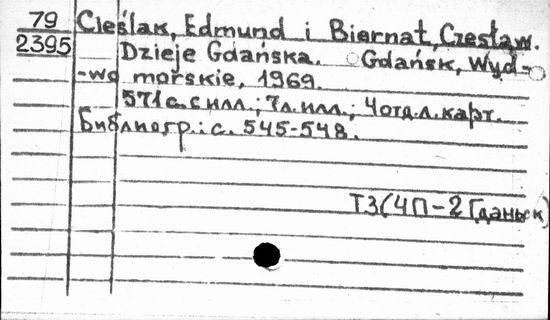 79
2395
Cieślak, Edmund i Biernat, Czesław.
Dzieje Gdańska. Gdańsk, Wyd-
-wo morskie, 1969.
571 с. с илл.; 7 л. илл.; 4 отд. л. карт.
Библиогр.: с. 545-548.
T3(4П-2 Гданьск)